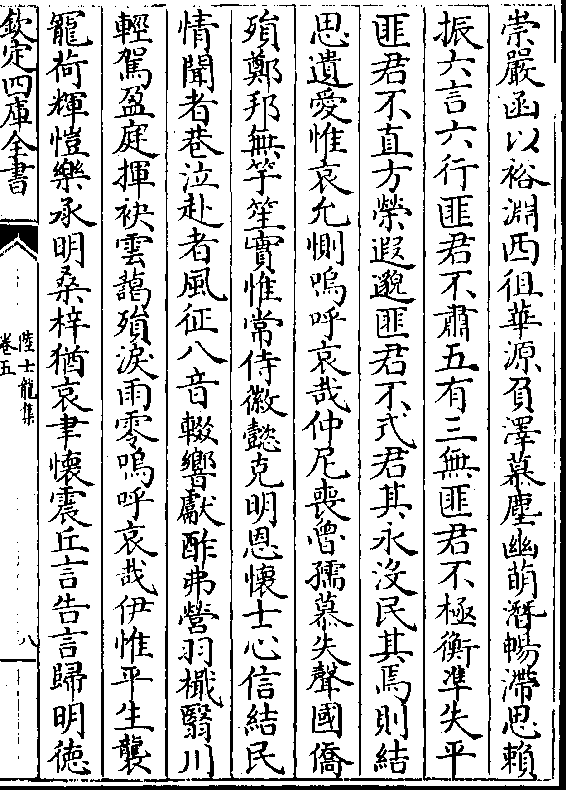 崇嚴函以裕淵西徂華源負澤慕塵幽萌潛暢滯思賴
振六言六行匪君不肅五有三無匪君不極衡準失平
匪君不直方榮遐邈匪君不式君其永沒民其焉則結
思遺愛惟哀允惻嗚呼哀哉仲尼喪魯孺慕失聲國僑
殞鄭邦無竽笙實惟常侍徽懿克明恩懷士心信結民
情聞者巷泣赴者風征八音輟響獻酢弗營羽檝翳川
輕駕盈庭揮袂雲藹殞淚雨零嗚呼哀哉伊惟平生襲
寵荷輝愷樂承明桑梓猶哀聿懷震丘言告言歸明徳
欽定四庫全書
陸士龍集
卷五
八